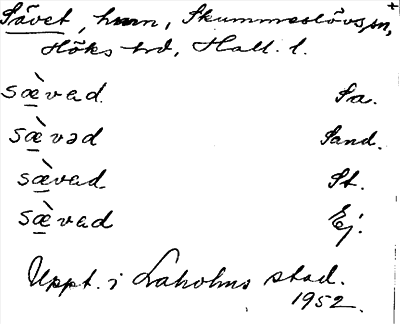 Sävet, hmn, Skummeslövs sn, +
Höks hd, Hall. l.
sæ̀vad. Sa.
sæ̀vad Sand.
sæ̀vad St.
sæ̀vad Ej.
Uppt. i Laholms stad.
1952.